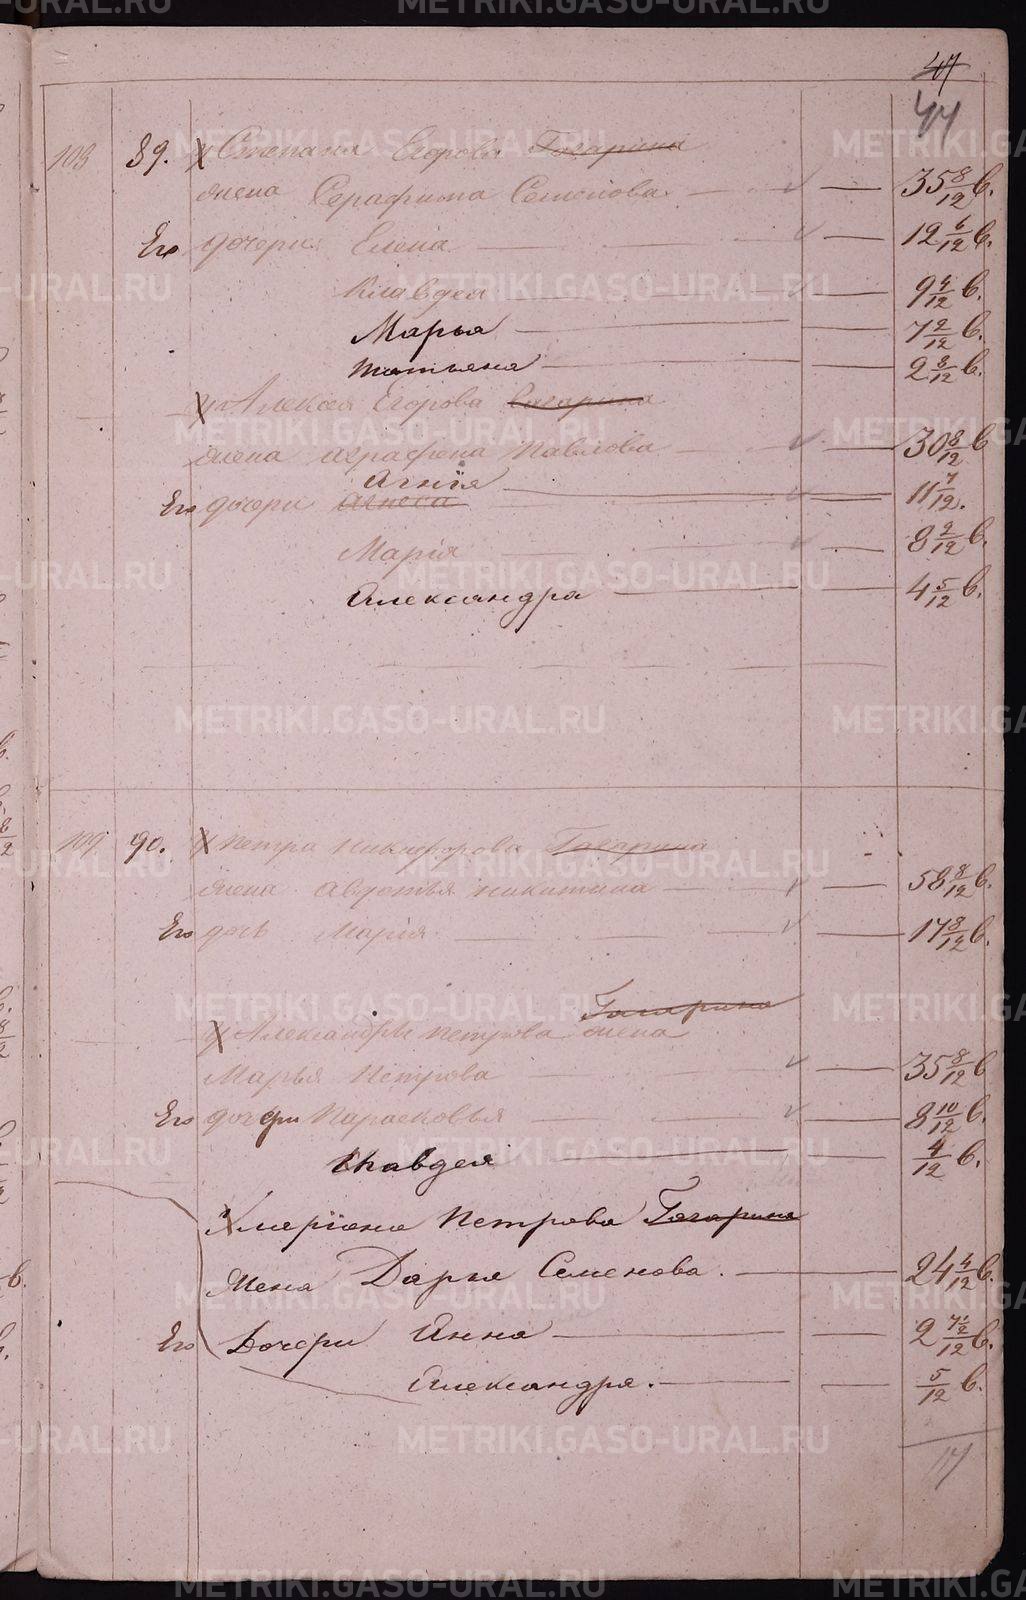 47
44
103 89. у Степана Егорова Гагарина
жена Серафима Семенова 35 8/12 в.
Его дочери Елена 12 6/12 в.
Клавдея 9 4/12 в.
Марья 7 2/12 в.
Татьяна 2 8/12 в.
у Алексея Егорова Гагарина
жена Аграфена Павлова 30 8/12 в
Агнія
Его дочери Агнеса 11 7/12.
Марія 8 2/12 в.
Александра 4 5/12 в.
109 90. у Петра Никифорова Гагарина
жена Авдотья Никитина 58 8/12 в.
Его дочь Марія 17 8/12 в.
Гагарина
у Александра Петрова жена
Марья Петрова 35 8/12 в
Его дочери Парасковья 8 10/12 в.
Клавдея 4/12 в.
Петрова Гагарина
Жена Дарья Семенова. 24 4/12 в.
Его Дочери Анна 2 в.
Александра. 5/12 в.
17
METRIKI.GASO-URAL.RU